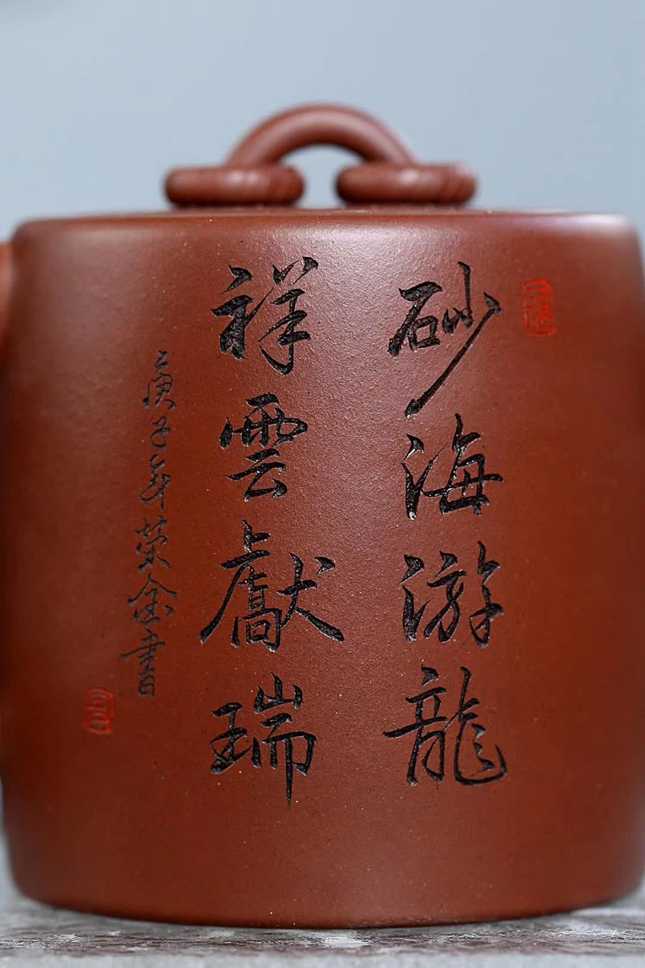 砂海游龍
祥雲獻瑞
庚子年荣金書